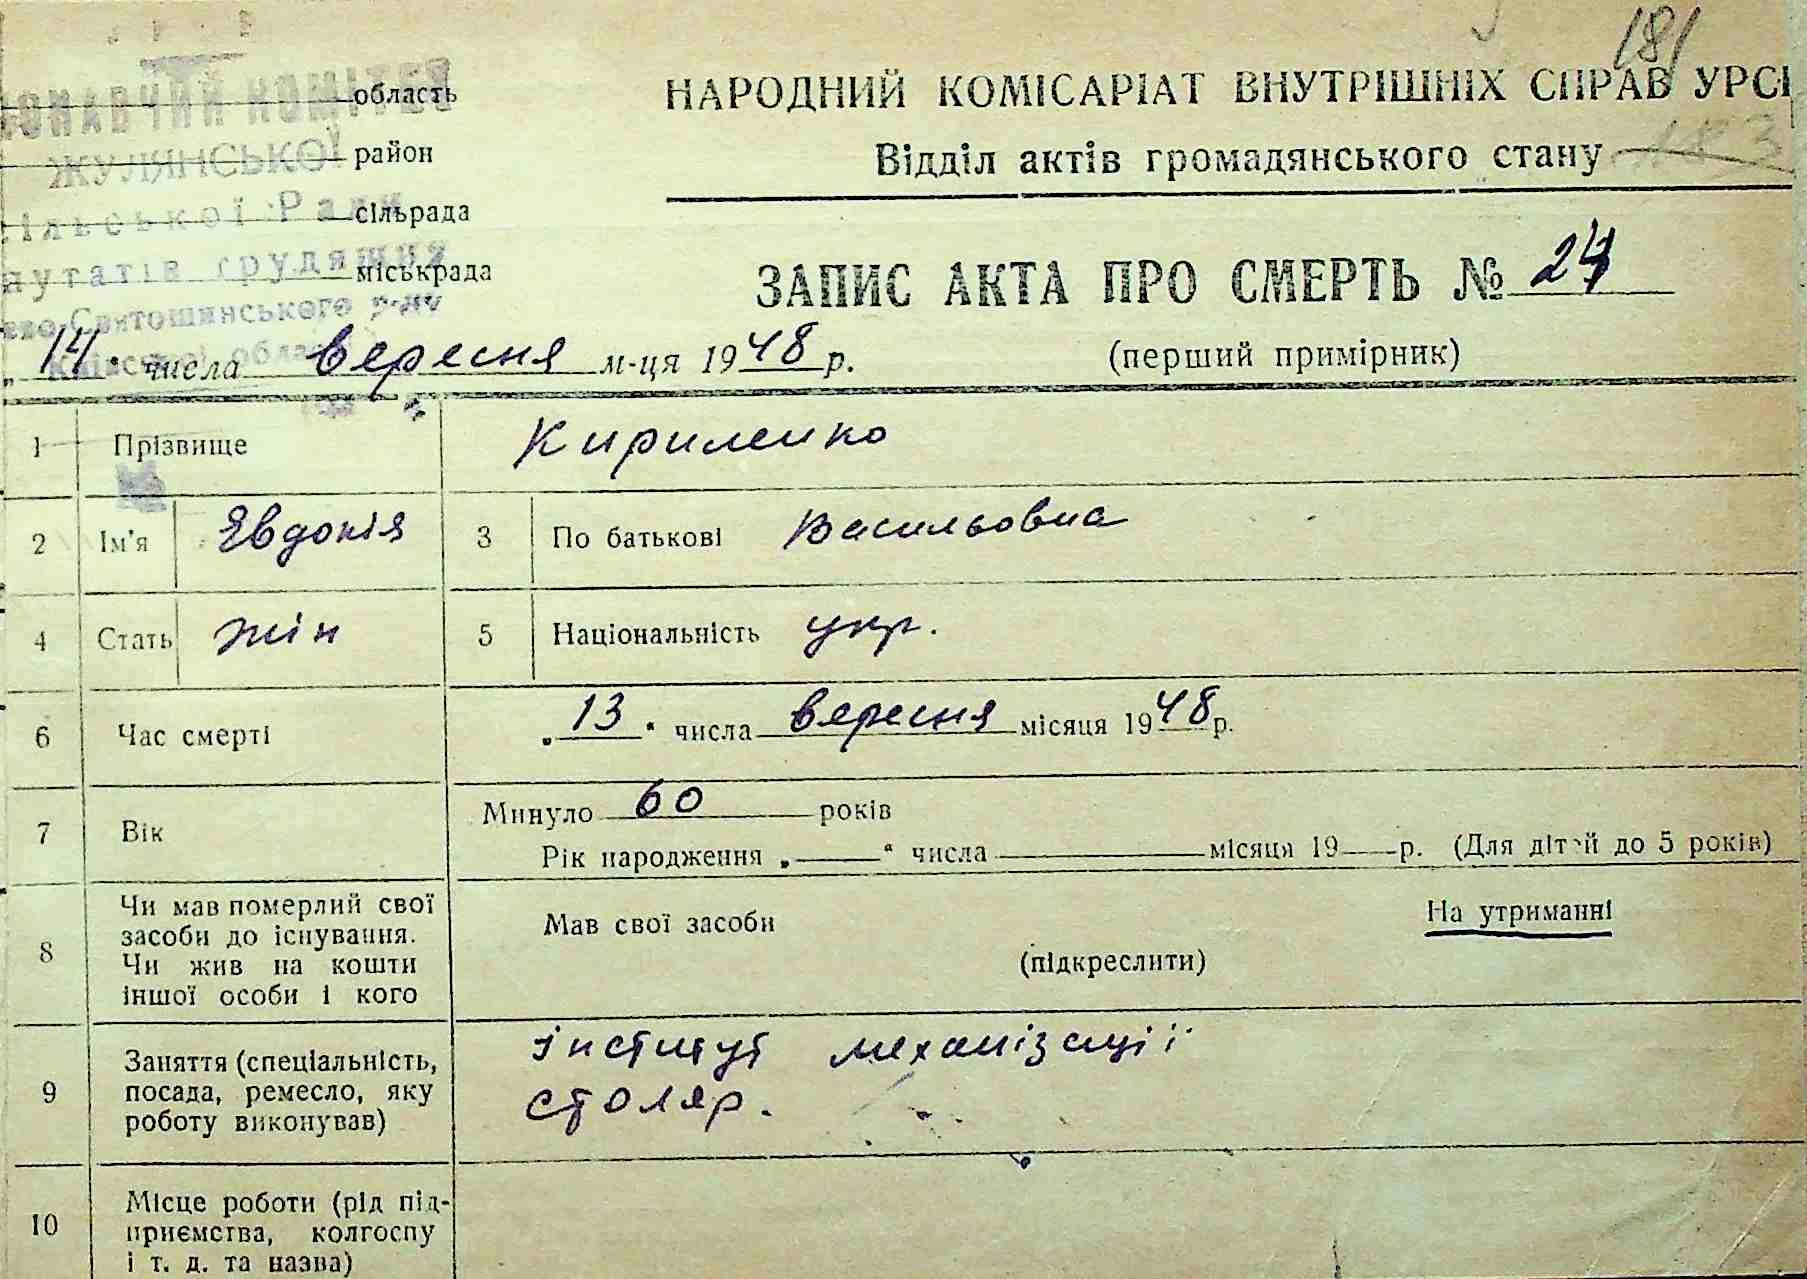 181
область
НАРОДНИЙ КОМІСАРІАТ ВНУТРІШНІХ СПРАВ УРСІ
КОМІТЕТ
ЖУЛЯНСЬКОЇ
район
Відділ актів громадянського стану
сільрада
Ради
міськрада
ЗАПИС АКТА ПРО СМЕРТЬ №
Святошинського р-ну
„14" числа вересня м-ця 1948 р.
(перший примірник)
1 Прізвище Кириленко
2 Ім'я Євдокія 3 По батькові Васильовна
4 Стать жін 5 Національність укр.
6 Час смерті „13" числа вересня місяця 1948 р.
7 Вік Минуло 60 років
Рік народження „ " числа місяця 19 р. (Для дітей до 5 років)
8 Чи мав померлий свої
засоби до існування.
Чи жив на кошти
іншої особи і кого
Мав свої засоби На утриманні
(підкреслити)
9 Заняття (спеціальність,
посада, ремесло, яку
роботу виконував)
інститут механізації
столяр.
10 Місце роботи (рід під-
приємства, колгоспу
і т. д. та назва)